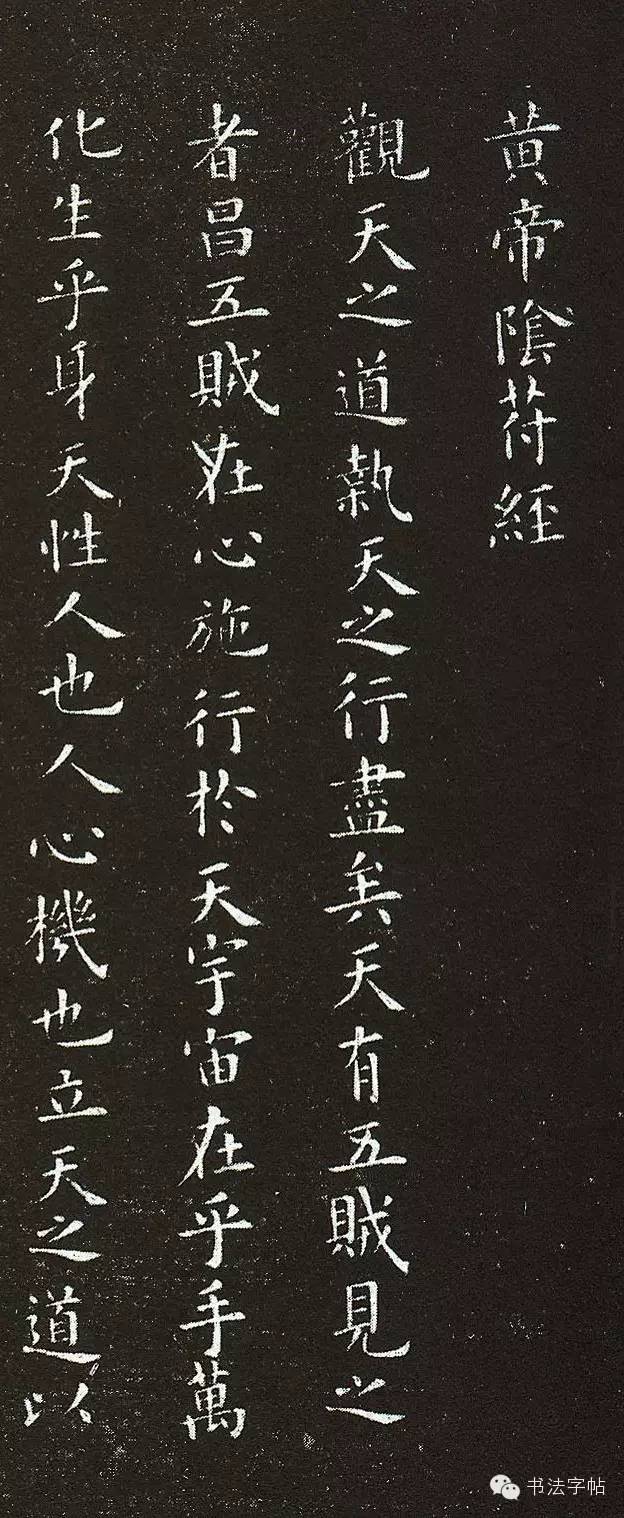 黄帝陰苻經
觀天之道執天之行盡矣天有五賊見之
者昌五賊在心施行於天宇宙在乎手萬
化生乎身天性人也人心機也立天之道以
书法字帖